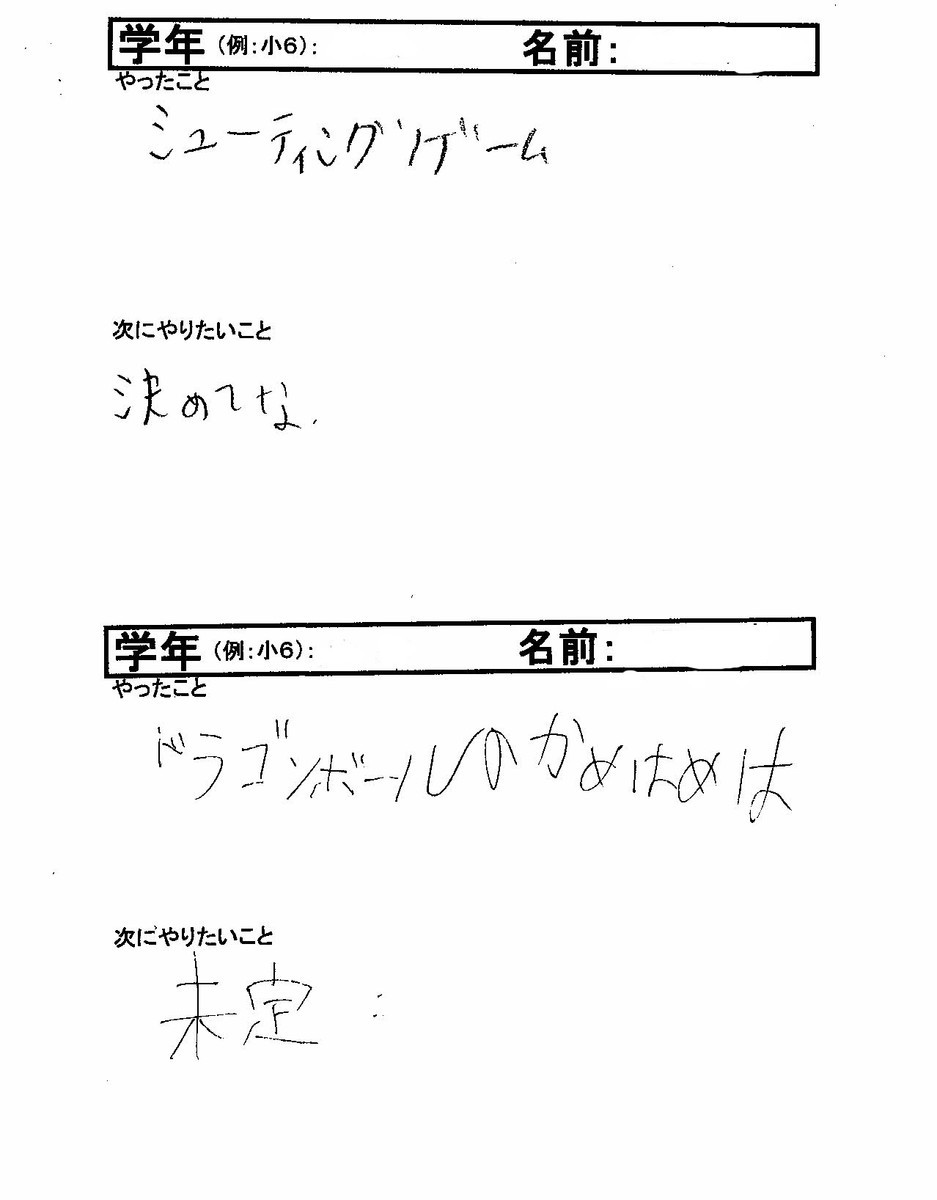 学年（例：小6）： 名前：
やったこと
シューティングゲーム
次にやりたいこと
決めてな.
学年（例：小6）： 名前：
やったこと
ドラゴンボールのかめはめは
次にやりたいこと
未定